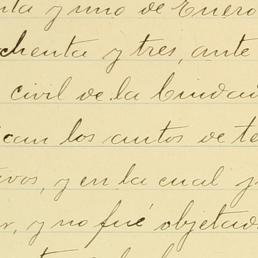 ta y uno de Enero
chenta y tres, ante
civil de la Ciudad
can los autos de te
vos, y en la cual
r, y no fué objetad